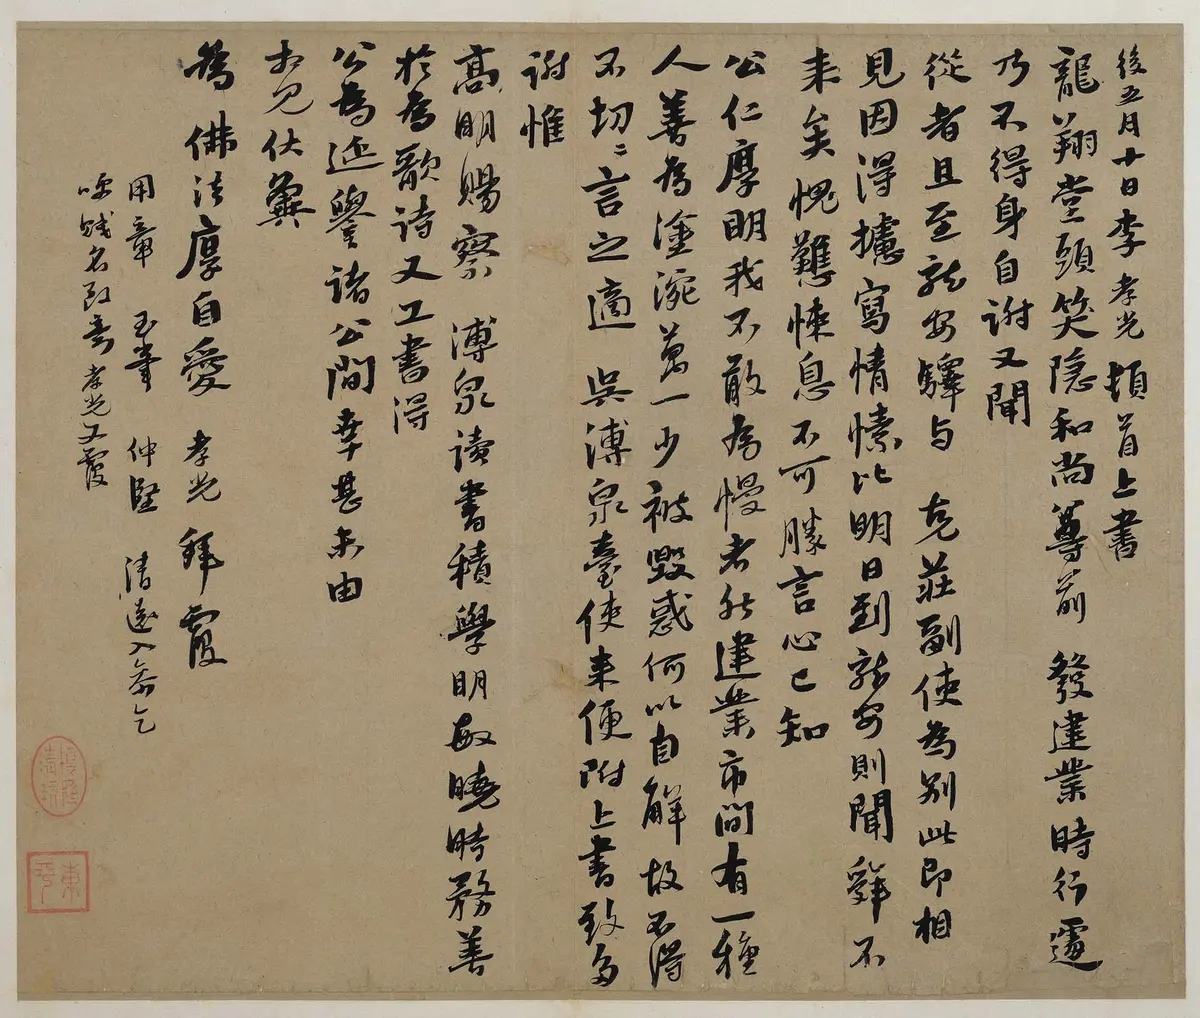 後五月十日李孝光頓首上書
龍翔堂頭笑隱和尚尊前 發建業時行遽
乃不得身自謝又聞
從者且至龍安驛与 克莊副使為別此即相
見因得攄寫情愫比明日到龍安則聞舜不
来矣愧難悚息不可勝言心已知
公仁厚明我不敢為慢者然建業市間有一種
人善為塗涴萬一少被毀惑何以自解故不得
不切〻言之適 吳溥泉臺使来便附上書致多
謝惟
高明賜察 溥泉讀書積學明敏曉時務善
於為歌詩又工書得
公為延譽諸公間幸甚未由
相見伏冀
為佛法厚自愛 孝光拜覆
用章 玉峯 仲堅 清遠 乞
名 孝光又覆